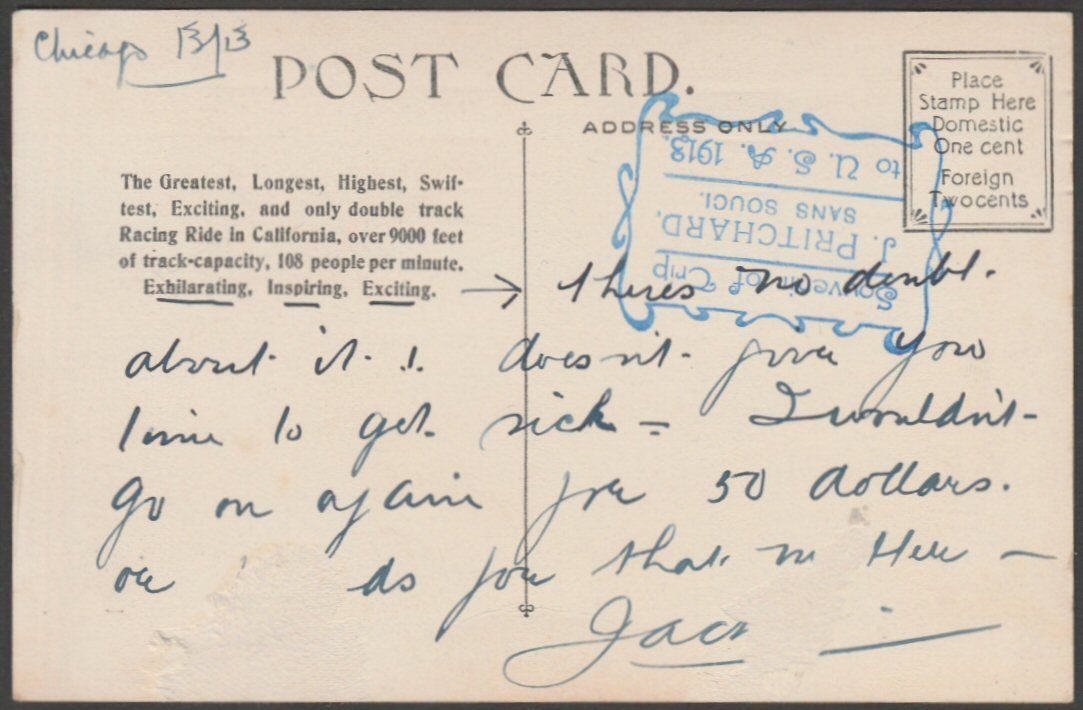 Chicago 13/13
POST CARD.
Place
Stamp Here
Domestic
One cent
Foreign
Two cents
ADDRESS ONLY
Souvenir of Trip
J. PRITCHARD.
SANS SOUCI.
to U. S. A. 1913.
The Greatest, Longest, Highest, Swif-
test, Exciting, and only double track
Racing Ride in California, over 9000 feet
of track-capacity, 108 people per minute.
Exhilarating, Inspiring, Exciting.
theres no doubt.
about it. ! doesn't give you
time to get sick = I wouldn't
go on again for 50 dollars.
or ds for that in Here —
Jack